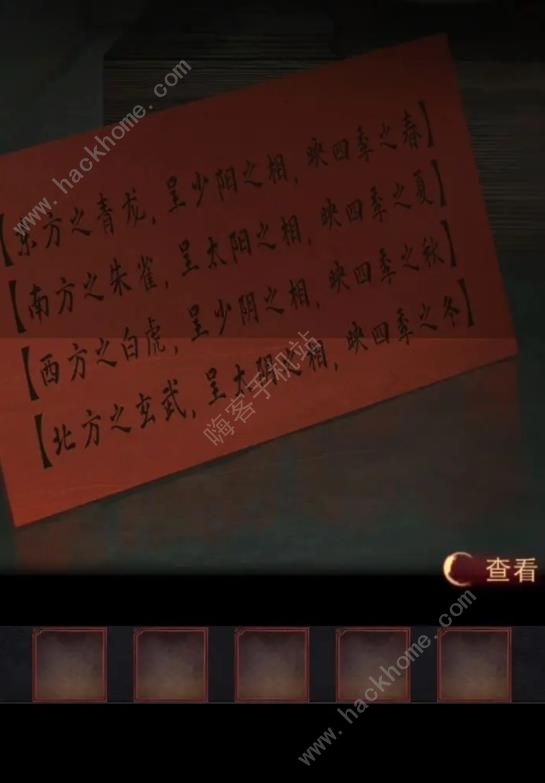 【东方之青龙，呈少阳之相，映四季之春】
【南方之朱雀，呈太阳之相，映四季之夏】
【西方之白虎，呈少阴之相，映四季之秋】
【北方之玄武，呈太阴之相，映四季之冬】
查看
www.hackhome.com
嗨客手机站
www.hackhome.com